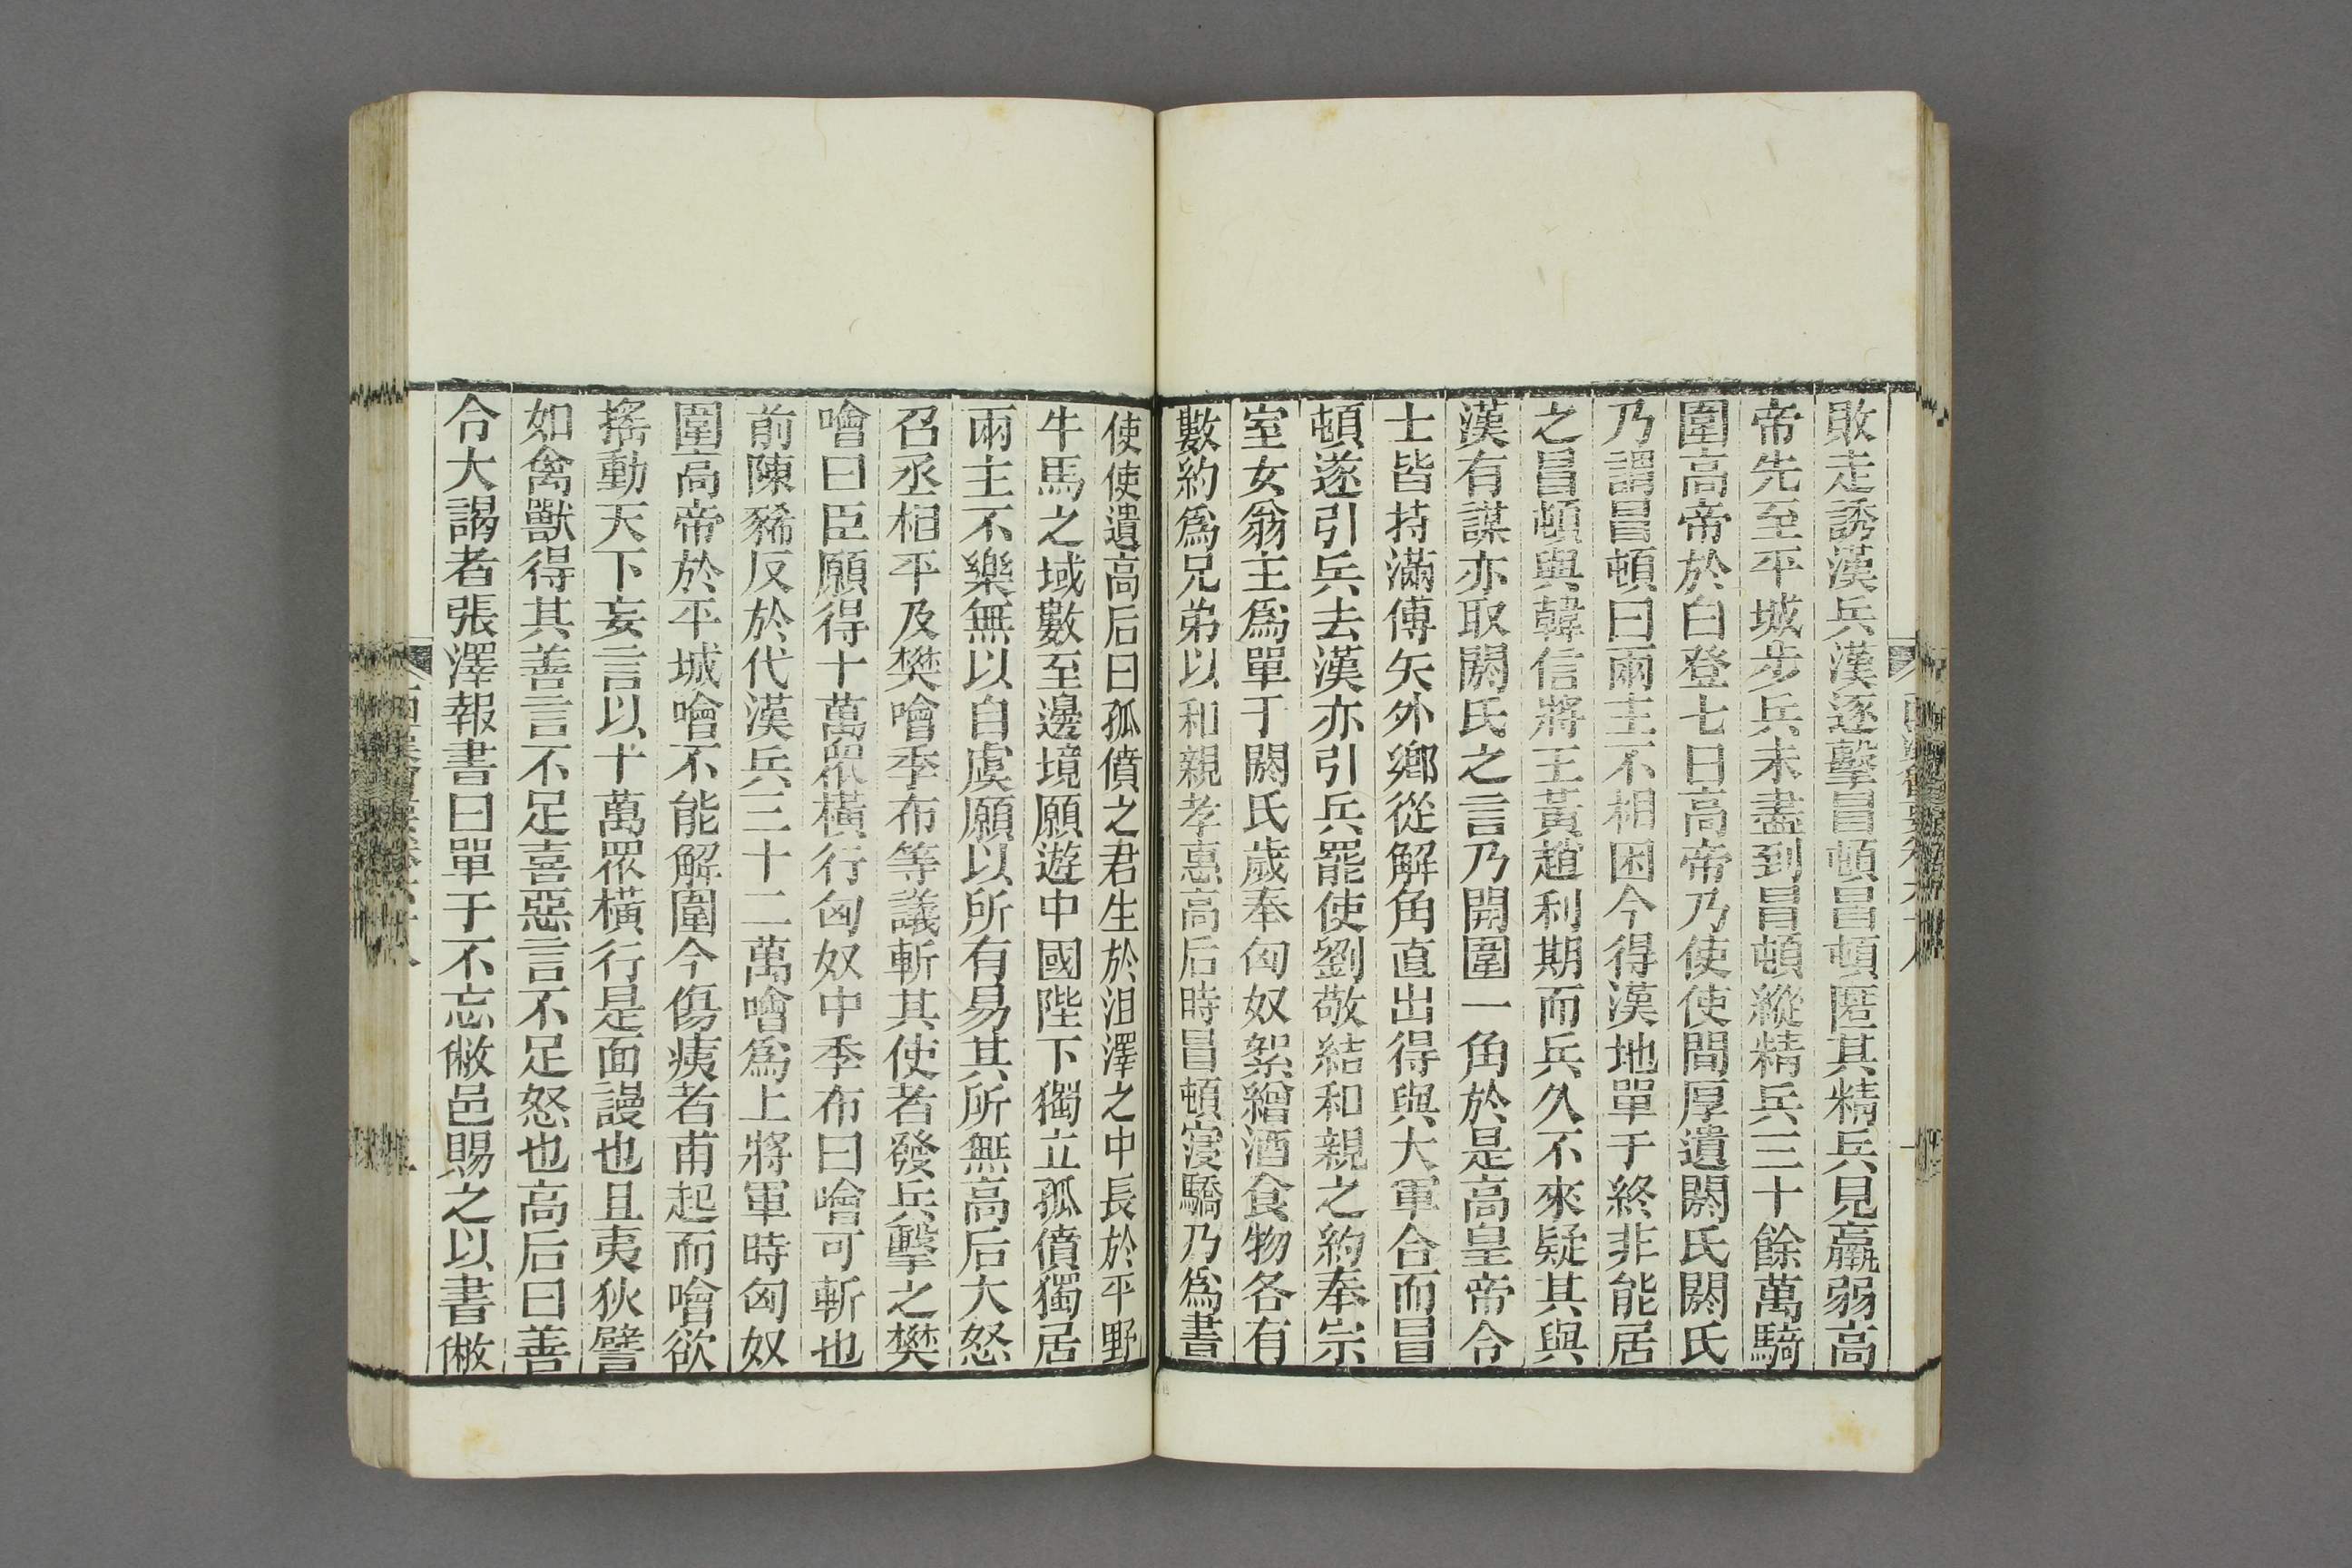 敗走誘漢兵漢逐擊冒頓冒頓匿其精兵見羸弱高
帝先至平城步兵未盡到冒頓縱精兵三十餘萬騎
圍高帝於白登七日高帝乃使使間厚遺閼氏閼氏
乃謂冒頓曰兩主不相困今得漢地單于終非能居
之冒頓與韓信將王黃趙利期而兵久不來疑其與
漢有謀亦取閼氏之言乃開圍一角於是高皇帝令
士皆持滿傅矢外鄉從解角直出得與大軍合而冒
頓遂引兵去漢亦引兵罷使劉敬結和親之約奉宗
室女翁主爲單于閼氏歲奉匈奴絮繒酒食物各有
數約爲兄弟以和親孝惠高后時冒頓寖驕乃爲書
使使遺高后曰孤僨之君生於沮澤之中長於平野
牛馬之域數至邊境願遊中國陛下獨立孤僨獨居
兩主不樂無以自虞願以所有易其所無高后大怒
召丞相平及樊噲季布等議斬其使者發兵擊之樊
噲曰臣願得十萬眾橫行匈奴中季布曰噲可斬也
前陳豨反於代漢兵三十二萬噲爲上將軍時匈奴
圍高帝於平城噲不能解圍今傷痍者甫起而噲欲
搖動天下妄言以十萬眾橫行是面謾也且夷狄譬
如禽獸得其善言不足喜惡言不足怒也高后曰善
令大謁者張澤報書曰單于不忘敝邑賜之以書敝